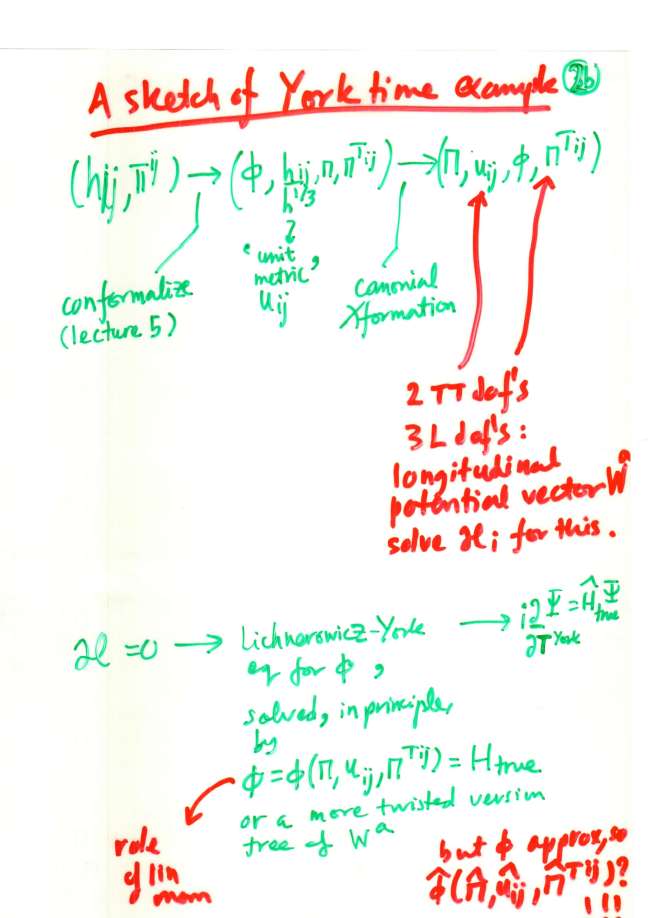 A sketch of York time example 2b
(hij, πij) → (Φ, hij/h1/3, Π, ΠTij) → (Π, uij, Φ, ΠTij)
'unit
metric'
uij
conformalize
(lecture 5)
canonial
Xformation
2 TT dof's
3 L dof's:
longitudinal
potential vector Wa
solve ℋi for this.
ℋ = 0 → Lichnerowicz-York
eq for Φ,
→ i∂Ψ/∂TYork = ĤtrueΨ
solved, in principle,
by
Φ = Φ(Π, uij, ΠTij) = Htrue
or a more twisted version
free of Wa
role
of lin
mom
but Φ approx, so
Φ̂(Π̂, ûij, Π̂Tij)?
!!!